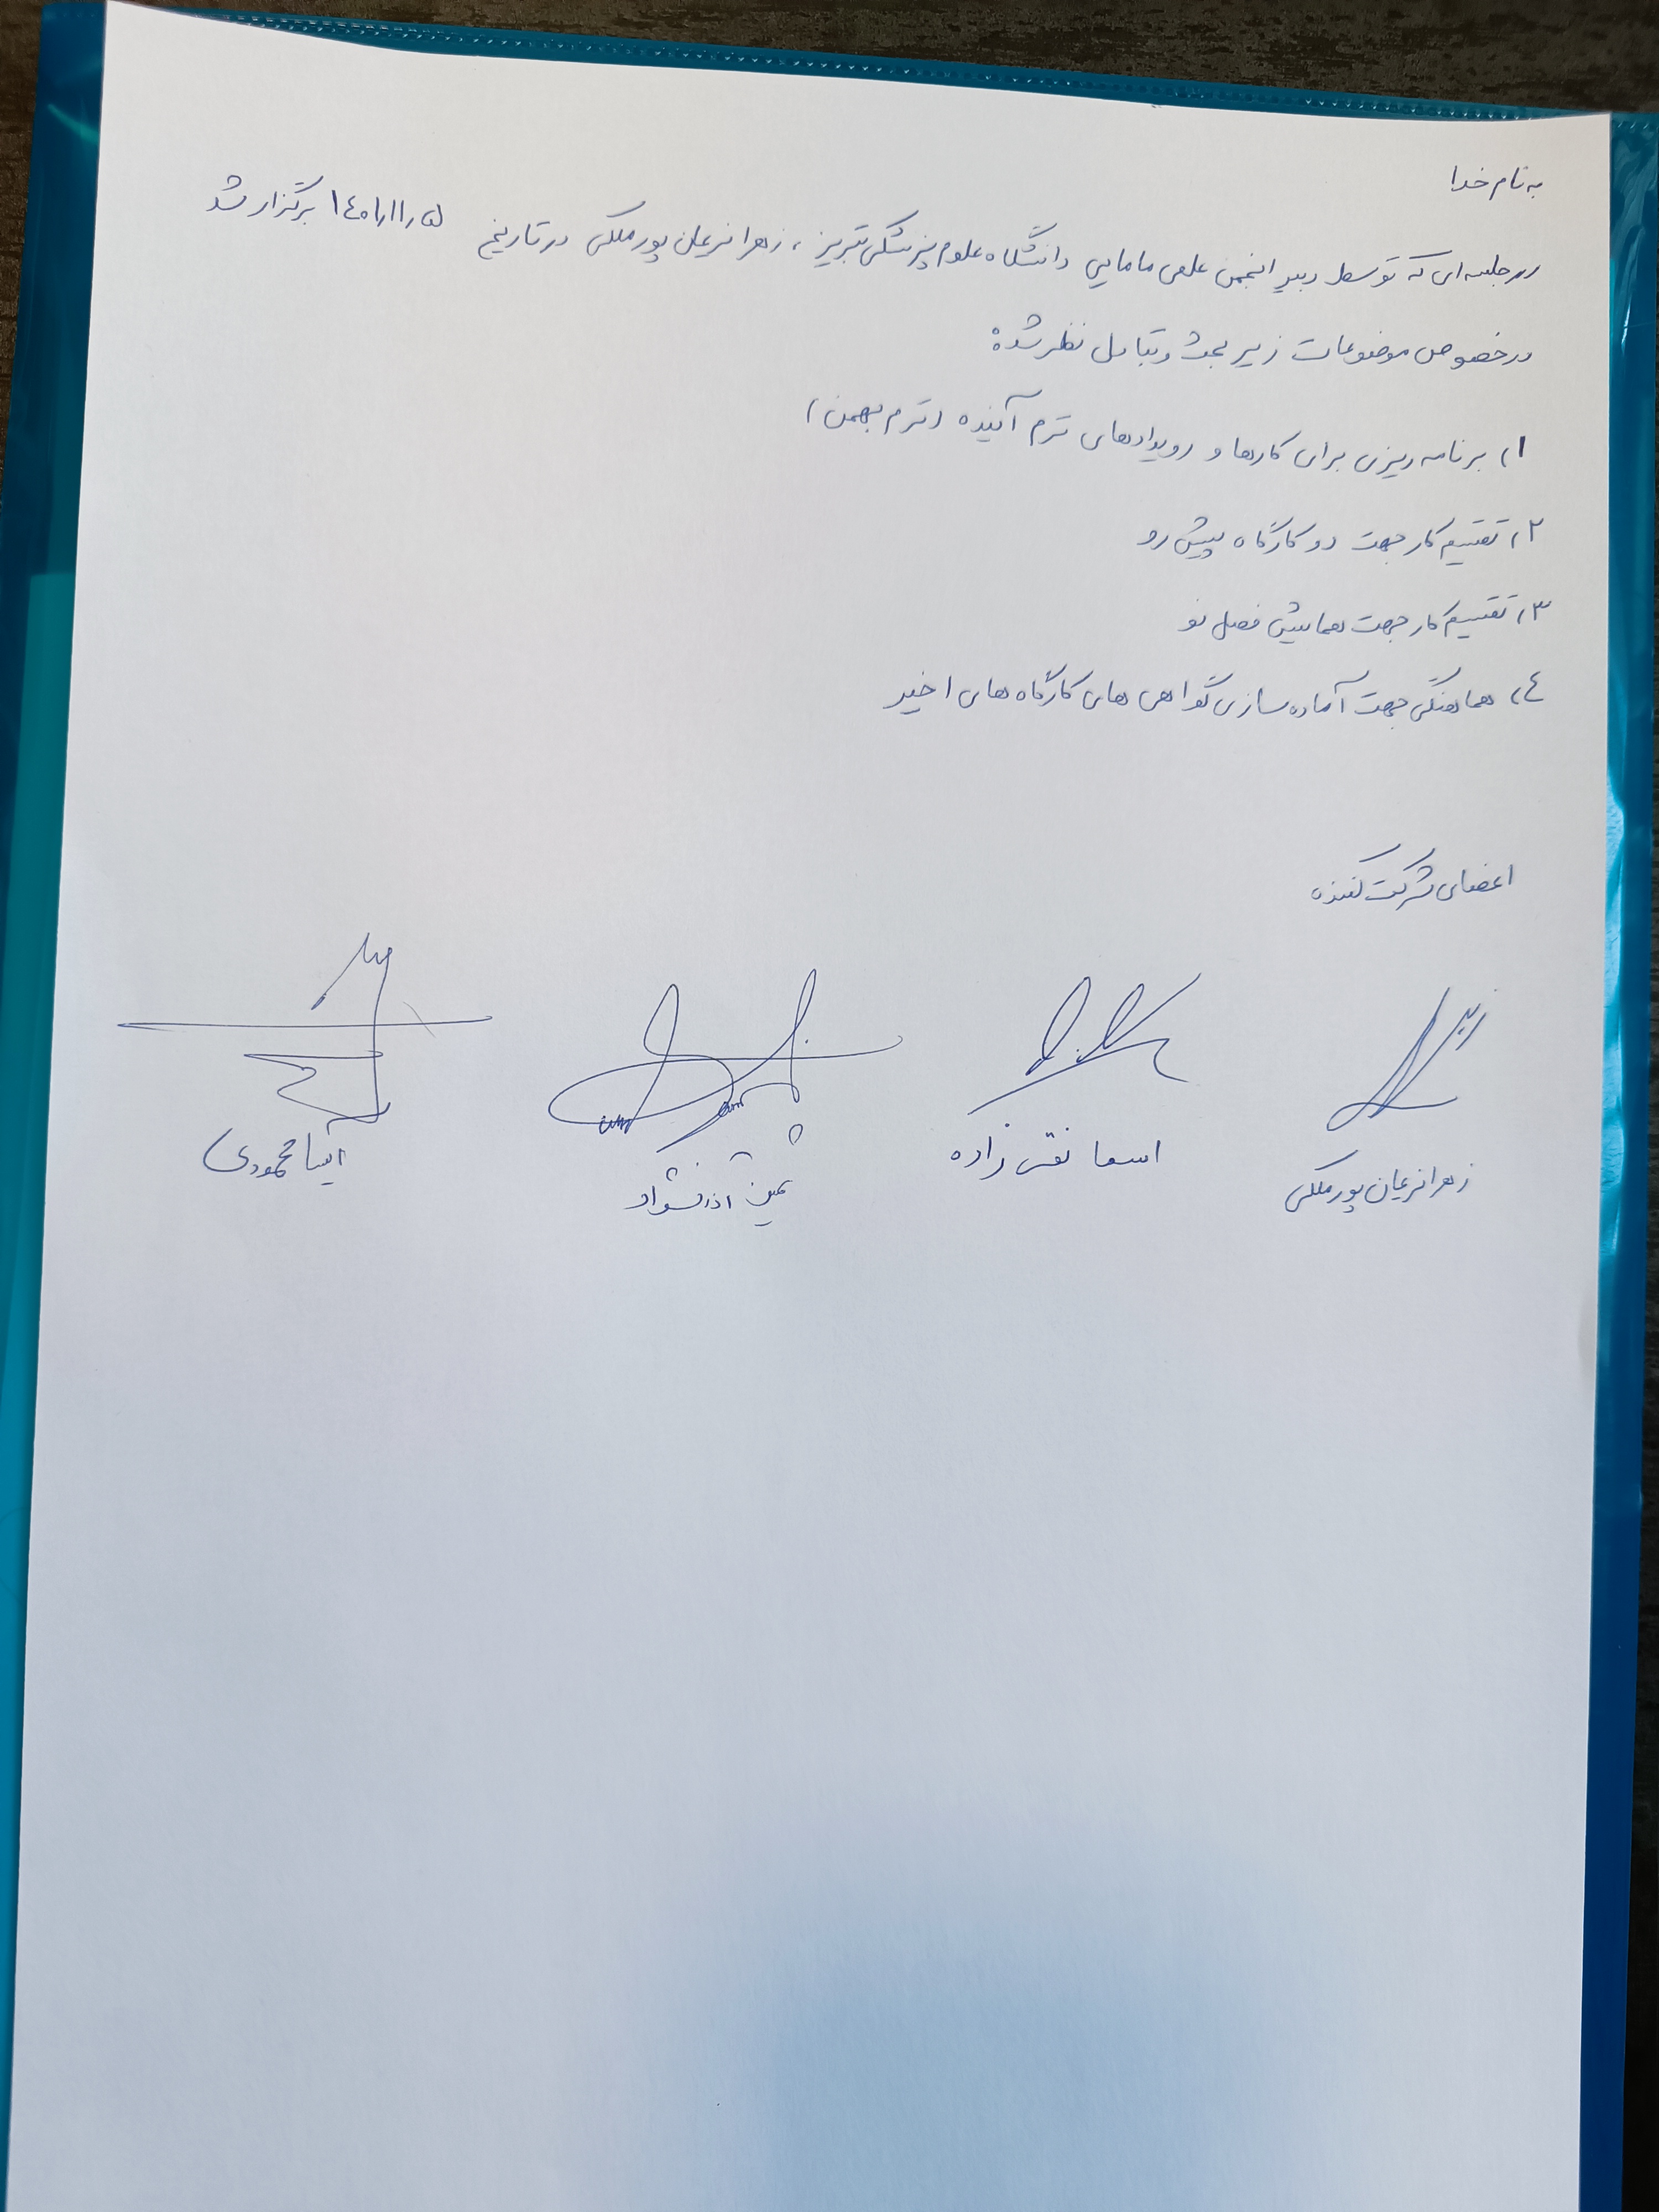 به نام خدا
در جلسه ای که توسط دبیر انجمن علمی مامایی دانشگاه علوم پزشکی تبریز ، زهرا نریمان پور ملکی در تاریخ ۱۴۰۱/۱۱/۵ برگزار شد
در خصوص موضوعات زیر بحث و تبادل نظر شد:
۱، برنامه ریزی برای کارها و رویدادهای ترم آینده (ترم بهمن)
۲، تقسیم کار جهت دو کارگاه پیش رو
۳، تقسیم کار جهت همایش فصل نو
۴، هماهنگی جهت آماده سازی گواهی های کارگاه های اخیر
اعضای شرکت کننده
زهرا نریمان پور ملکی
اسما تقی زاده
ثمین آذرنشواد
آیسا محمودی